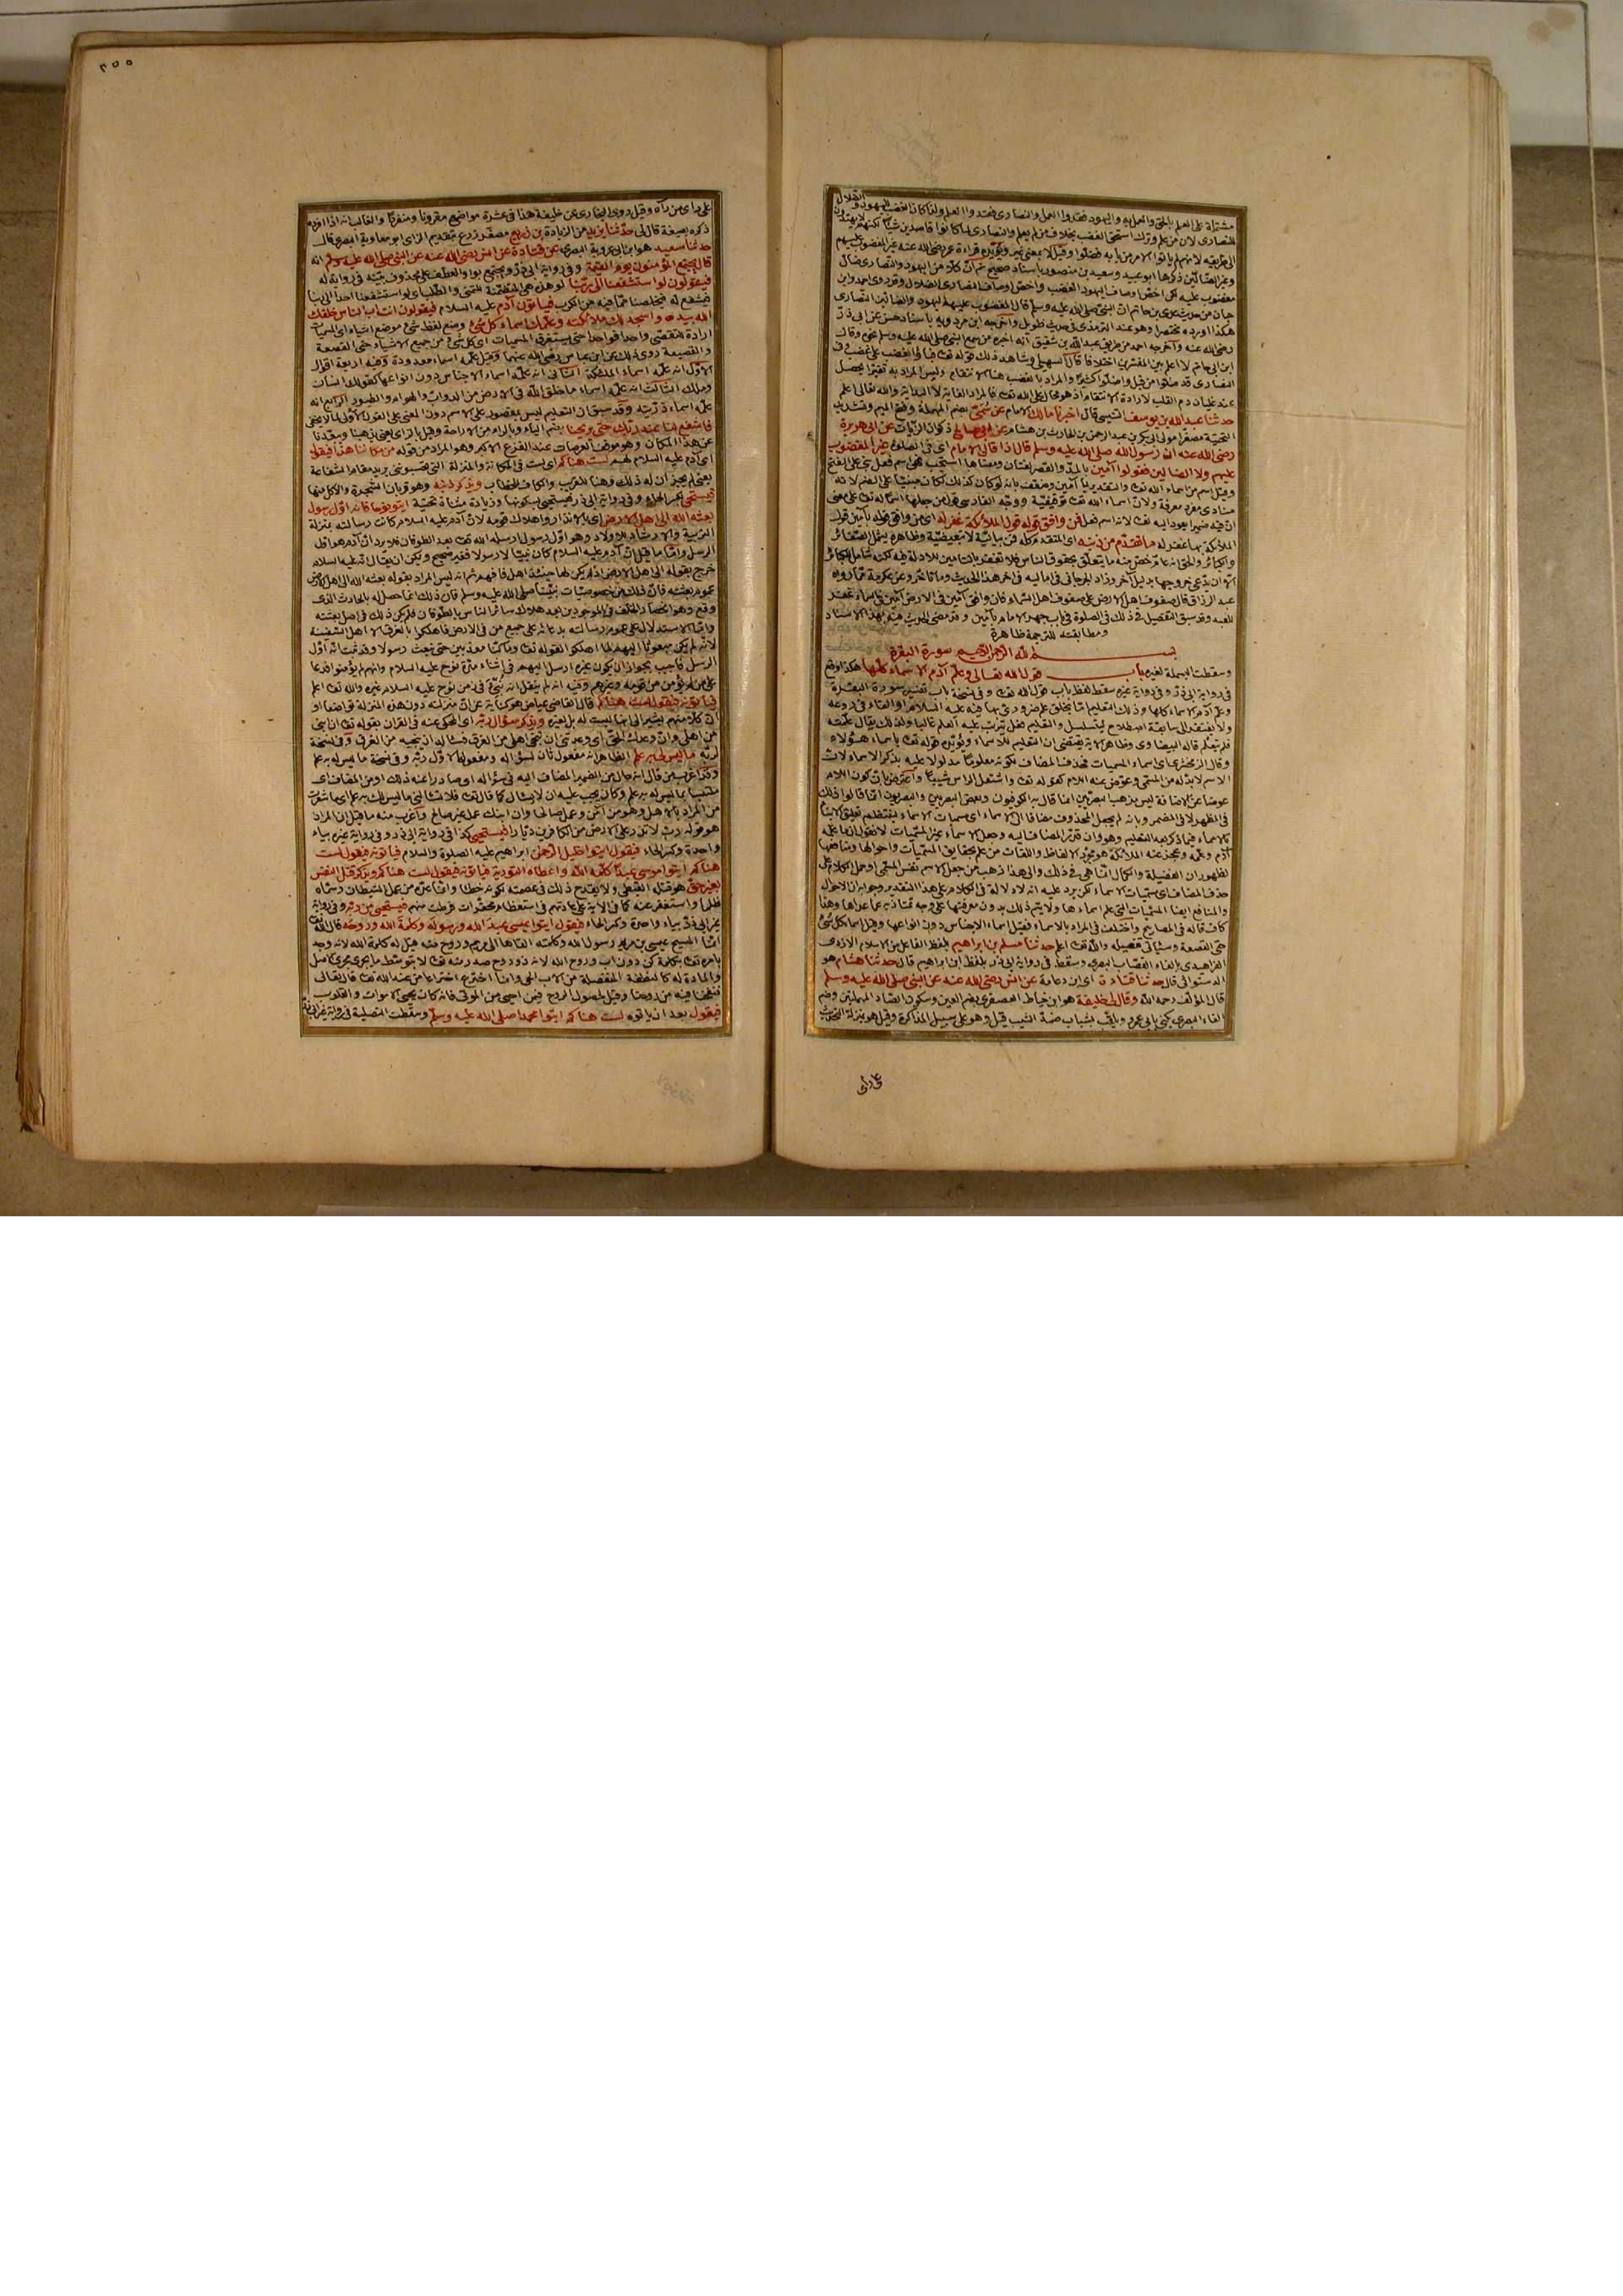 مشتملة على العلم بالحق والعمل به واليهود فقدوا العمل والنصارى فقدوا العلم ولذا كان الغضب لليهود والضلال
للنصارى لان من علم وترك استحق الغضب بخلاف من لم يعلم والنصارى لما كانوا قاصدين شيئا لكنهم لا يهتدون
الى طريقه لانهم لم ياتوا الامر من بابه فضلوا وقيل لا بمعنى غير ويؤيده قراءة عمر رضى الله عنه غير المغضوب عليهم
وغير الضالين ذكرها ابو عبيد وسعيد بن منصور باسناد صحيح ثم ان كلا من اليهود والنصارى ضال
مغضوب عليه لكن اخص اوصاف اليهود الغضب واخص اوصاف النصارى الضلال وقد روى احمد وابن
حبان من حديث عدى بن حاتم ان النبى صلى الله عليه وسلم قال المغضوب عليهم اليهود والضالين النصارى
هكذا اورده مختصرا وهو عند الترمذى فى حديث طويل واخرجه ابن مردويه باسناد حسن عن ابى ذر
رضى الله عنه واخرجه احمد من طريق عبد الله بن شقيق انه اخبره من سمع النبى صلى الله عليه وسلم نحوه وقال
ابن ابى حاتم لا اعلم بين المفسرين اختلافا قال السهيلى وشاهد ذلك قوله تعالى
النصارى قد ضلوا من قبل واضلوا كثيرا والمراد بالغضب هنا الانتقام وليس المراد به تغيرا يحصل
عند غليان دم القلب لارادة الانتقام اذ هو محال على الله تعالى فالمراد الغاية لا البداية والله تعالى اعلم
حدثنا عبد الله بن يوسف التنيسى قال اخبرنا مالك الامام عن سمى بضم المهملة وفتح الميم وتشديد
التحتية مصغرا مولى ابى بكر بن عبد الرحمن بن الحارث بن هشام عن ابى صالح ذكوان الزيات عن ابى هريرة
رضى الله عنه ان رسول الله صلى الله عليه وسلم قال اذا قال الامام اى فى الصلوة غير المغضوب
عليهم ولا الضالين فقولوا آمين بالمد والقصر لغتان ومعناها استجب فهى اسم فعل بنى على الفتح
وقيل اسم من اسماء الله تعالى والتقدير يا آمين وضعف بانه لو كان كذلك لكان مبنيا على الضم لانه
منادى مفرد معرفة ولان اسماء الله تعالى توقيفية ووجه الفارسى قول من جعلها اسما لله تعالى على معنى
ان فيه ضميرا يعود اليه تعالى لانه اسم فعل فمن وافق قوله قول الملائكة غفر له اى من وافق قوله بآمين قول
الملائكة بها غفر له ما تقدم من ذنبه اى المتقدم كله فمن بيانية لا تبعيضية وظاهره يشمل الصغائر
والكبائر والحق انه عام خص منه ما يتعلق بحقوق الناس فلا تغفر بالتامين للادلة فيه لكنه شامل للكبائر
الا ان يدعى خروجها بدليل آخر وزاد الجرجانى فى اماليه فى آخر هذا الحديث وما تاخر وعن عكرمة مما رواه
عبد الرزاق قال صفوف اهل الارض على صفوف اهل السماء فان وافق آمين فى الارض آمين فى السماء غفر
للعبد وقد سبق التفصيل فى ذلك فى الصلوة فى باب جهر الامام بآمين وقد مضى الحديث فيه بهذا الاسناد
ومطابقته للترجمة ظاهرة
بسم الله الرحمن الرحيم سورة البقرة
وسقطت البسملة لغيره باب قول الله تعالى وعلم آدم الاسماء كلها هكذا وقع
فى رواية ابى ذر وفى رواية غيره سقط لفظ باب قول الله تعالى وفى نسخة باب تفسير سورة البقرة
وعلم آدم الاسماء كلها وذلك التعليم اما بخلق علم ضرورى بها فيه عليه السلام او القاء فى روعه
ولا يفتقر الى سابقة اصطلاح ليتسلسل والتعليم فعل يترتب عليه العلم غالبا ولذلك يقال علمته
فلم يتعلم قاله البيضاوى وظاهر الآية يقتضى ان التعليم للاسماء ويؤيده قوله تعالى باسماء هؤلاء
وقال الزمخشرى اى اسماء المسميات فحذف المضاف لكونه معلوما مدلولا عليه بذكر الاسماء لان
الاسم لا بد له من المسمى وعوض عنه اللام كقوله تعالى واشتعل الراس شيبا واعترض بان كون اللام
عوضا عن الاضافة ليس مذهب البصريين انما قال به الكوفيون وبعض البصريين والبصريون انما قالوا ذلك
فى المظهر لا فى المضمر وبانه لم يجعل المحذوف مضافا الى الاسماء اى مسميات الاسماء لينتظم تعليق الانباء
بالاسماء فيما ذكر بعد التعليم وهو وان قدر المضاف اليه وجعل الاسماء غير المسميات
آدم وعلمه وعجز عنه الملائكة هو مجرد الالفاظ واللغات من غير علم بحقايق المسميات واحوالها ومنافعها
لظهور ان الفضيلة والكمال انما هى فى ذلك والى هذا ذهب من جعل الاسم نفس المسمى او حمل الكلام على
حذف المضاف اى مسميات الاسماء لكن يرد عليه انه لا دلالة فى الكلام على هذا التقدير وجوابه ان الاحوال
والمنافع ايضا المسميات التى علم اسماءها ولا يتم ذلك بدون معرفتها على وجه تمتاز به عما عداها وهذا
كاف قاله فى المصابيح واختلف فى المراد بالاسماء فقيل اسماء الاجناس دون انواعها وقيل اسماء كل شئ
حتى القصعة وسياتى تفصيله والله تعالى اعلم حدثنا مسلم بن ابراهيم بلفظ الفاعل من الاسلام الازدى
الفراهيدى بالفاء القصاب البصرى وسقط فى رواية ابى ذر لفظ ابن ابراهيم قال حدثنا هشام هو
الدستوائى قال حدثنا قتادة اى ابن دعامة عن انس رضى الله عنه عن النبى صلى الله عليه وسلم
قال المؤلف رحمه الله وقال لى خليفة هو ابن خياط العصفرى بضم العين وسكون الصاد المهملتين وضم
الفاء البصرى يكنى بابى عمرو ويلقب بشباب ضد الشيب قيل وهو على سبيل المذاكرة وقيل هو بمنزلة التحديث
على راى
٢٥٥
على راى من رآه وقيل روى البخارى عن خليفة هذا فى عشرة مواضع مقرونا ومنفردا والغالب انه اذا افرده
ذكره بصيغة قال لى حدثنا يزيد من الزيادة بن زريع مصغر زرع بتقديم الزاى ابو معاوية البصرى قال
حدثنا سعيد هو ابن ابى عروبة البصرى عن قتادة عن انس رضى الله عنه عن النبى صلى الله عليه وسلم انه
قال يجتمع المؤمنون يوم القيمة وفى رواية ابى ذر ويجتمع بواو العطف على محذوف بينه فى رواية له
فيقولون لو استشفعنا الى ربنا لو هذه هى المتضمنة للتمنى والطلب اى لو استشفعنا احدا الى ربنا
فيشفع له فيخلصنا مما فيه من الكرب فياتون آدم عليه السلام فيقولون انت اب الناس خلقك
الله بيده واسجد لك ملائكته وعلمك اسماء كل شئ وضع لفظ شئ موضع اشياء اى المسميات
ارادة للتقصى واحدا فواحدا حتى يستغرق المسميات اى كل شئ من جميع الاشياء حتى القصعة
والقصيعة روى ذلك عن ابن عباس رضى الله عنهما وقيل علمه اسماء معدودة وفيه اربعة اقوال
الاول انه علمه اسماء الملائكة الثانى انه علمه اسماء الاجناس دون انواعها كقولك انسان
وملك الثالث انه علمه اسماء ما خلق الله فى الارض من الدواب والهوام والطيور الرابع انه
علمه اسماء ذريته وقد سبق ان التعليم ليس بمقصور على الاسم دون المعنى على القول الاولى لما لا يخفى
فاشفع لنا عند ربك حتى يريحنا بضم الياء وبالراء من الاراحة وقيل بالزاى يعنى يذهبنا ويبعدنا
عن هذا المكان وهو موقف العرصات عند الفزع الاكبر وهو المراد من قوله من مكاننا هذا فيقول
اى آدم عليه السلام لهم لست هناكم اى لست فى المكانة والمنزلة التى تحسبوننى يريد مقام الشفاعة
يعنى لم يجز ان له ذلك وهنا للقريب والكاف للخطاب ويذكر ذنبه وهو قربان الشجرة والاكل منها
فيستحى بكسر الحاء وفى رواية ابى ذر فيستحيى بسكونها وزيادة مثناة تحتية ايتوا نوحا فانه اول رسول
بعثه الله الى اهل الارض اى بالانذار واهلاك قومه لان آدم عليه السلام كانت رسالته بمنزلة
التربية والارشاد للاولاد وهو اول رسول ارسله الله تعالى بعد الطوفان فلا يرد ان آدم هو اول
الرسل واما ما قيل ان آدم عليه السلام كان نبيا لا رسولا فغير صحيح ويمكن ان يقال انه عليه السلام
خرج بقوله الى اهل الارض اذ لم يكن لها حينئذ اهل فافهم ثم انه ليس المراد بقوله بعثه الله الى اهل الارض
عموم بعثته فان ذلك من خصوصيات نبينا صلى الله عليه وسلم فان ذلك انما حصل له بالحادث الذى
وقع وهو انحصار الخلق فى الموجودين بعد هلاك سائر الناس بالطوفان فلم يكن ذلك فى اصل بعثته
واما الاستدلال على عموم رسالته بدعائه على جميع من فى الارض فاهلكوا بالغرق الا اهل السفينة
لانه لو لم يكن مبعوثا اليهم لما اهلكوا لقوله تعالى وما كنا معذبين حتى نبعث رسولا وقد ثبت انه اول
الرسل فاجيب بجواز ان يكون غيره ارسل اليهم فى اثناء مدة نوح عليه السلام وانهم لم يؤمنوا فدعا
على من لم يؤمن من قومه وغيرهم وفيه انه لم ينقل انه نبئ فى زمن نوح عليه السلام غيره والله تعالى اعلم
فياتونه فيقول لست هناكم قال القاضى عياض هو كناية عن ان منزلته دون هذه المنزلة تواضعا او
ان كلا منهم يشير الى انها ليست له بل لغيره ويذكر سؤال ربه اى المحكى عنه فى القرآن بقوله تعالى ان ابنى
من اهلى وان وعدك الحق اى وعدتنى ان تنجى اهلى من الغرق فساله ان ينجيه من الغرق وفى نسخة
لربه ما ليس لى به علم الظاهر انه مفعول ثان لسؤاله ومفعوله الاول ربه وفى نسخة ما ليس له به علم
وقد اغرب من قال انه حال من الضمير المضاف اليه فى سؤاله او صادرا عنه ذلك او من المضاف اى
متلبسا بما ليس له به علم وكان يجب عليه ان لا يسال كما قال تعالى فلا تسالنى ما ليس لك به علم اى ما شعرت
من المراد بالاهل وهو من آمن وعمل صالحا وان ابنك عمل غير صالح واغرب منه ما قيل ان المراد
هو قوله رب لا تذر على الارض من الكافرين ديارا فيستحيى كذا فى رواية ابى ذر وفى رواية غيره بياء
واحدة وكسر الحاء فيقول ايتوا خليل الرحمن ابراهيم عليه الصلوة والسلام فياتونه فيقول لست
هناكم ايتوا موسى عبدا كلمه الله واعطاه التورية فياتونه فيقول لست هناكم ويذكر قتل النفس
بغير حق هو قتله القبطى ولا يقدح ذلك فى عصمته لكونه خطأ وانما عده من عمل الشيطان وسماه
ظلما واستغفر عنه كما فى الآية على عادتهم فى استعظام محقرات فرطت منهم فيستحيى من ربه وفى رواية
غير ابى ذر بياء واحدة وكسر الحاء فيقول ايتوا عيسى عبد الله ورسوله وكلمة الله وروحه قال الله تعالى
انما المسيح عيسى بن مريم رسول الله وكلمته القاها الى مريم وروح منه قيل له كلمة الله لانه وجد
بامره تعالى بكلمة كن دون اب وروح الله لانه ذو روح صدر منه تعالى لا بتوسط ما يجرى مجرى الاصل
والمادة له كالنطفة المنفصلة من الاب الحى وانما اخترع اختراعا من عند الله تعالى قال تعالى
فنفخنا فيه من روحنا وقيل لحصول الروح فيمن احيى من الموتى فانه كان يحيى الاموات والقلوب
فيقول بعد ان ياتوه لست هناكم ايتوا محمدا صلى الله عليه وسلم وسقطت التصلية فى رواية غير ابى ذر